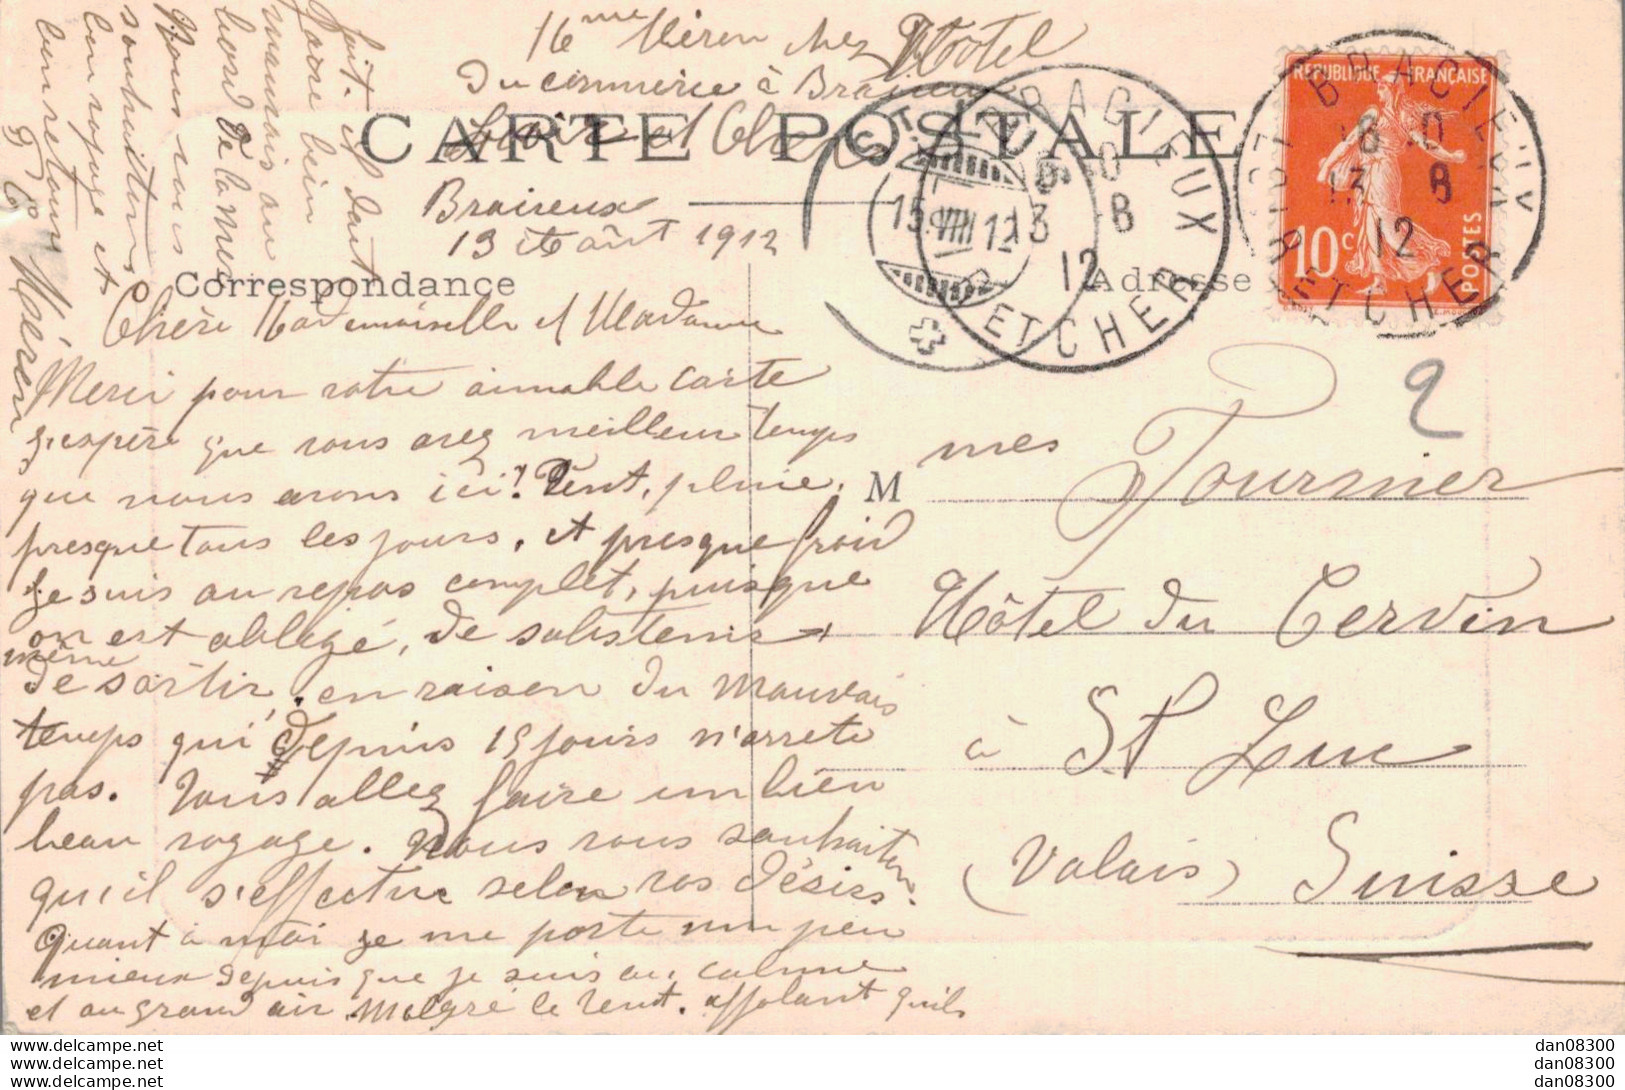 16me Méren chez Hôtel
Du commerce à
Loir et Cher
CARTE POSTALE
13 Août 1912
Correspondance
Adresse
Chère Mademoiselle et Madame
Merci pour votre aimable carte
J'espère que vous avez meilleur temps
que nous avons ici! Vent, pluie,
presque tous les jours, et presque froid
Je suis au repos complet, puisque
on est obligé, de s'abstenir
même
de sortir, en raison du mauvais
temps qui depuis 15 jours n'arrête
pas. Vous allez faire un bien
beau voyage. Nous vous souhaitons
qu'il s'effectue selon vos désirs.
Quant à moi je me porte un peu
mieux depuis que je suis au calme
et au grand air malgré le vent. affolant qu'ils
fait. et dont
J'adore bien
mauvais au
bord de la mer
Nous vous
souhaitons
bon voyage et
bon retour
Méren
REPUBLIQUE FRANÇAISE
10c
POSTES
BRACIEUX
LOIR ET CHER
13 8
12
BRACIEUX
ET CHER
13 8
12
ST. LUC
15.VIII.12
2
M mes Fournier
Hôtel du Cervin
à St Luc
(Valais) Suisse
dan08300
dan08300
dan08300